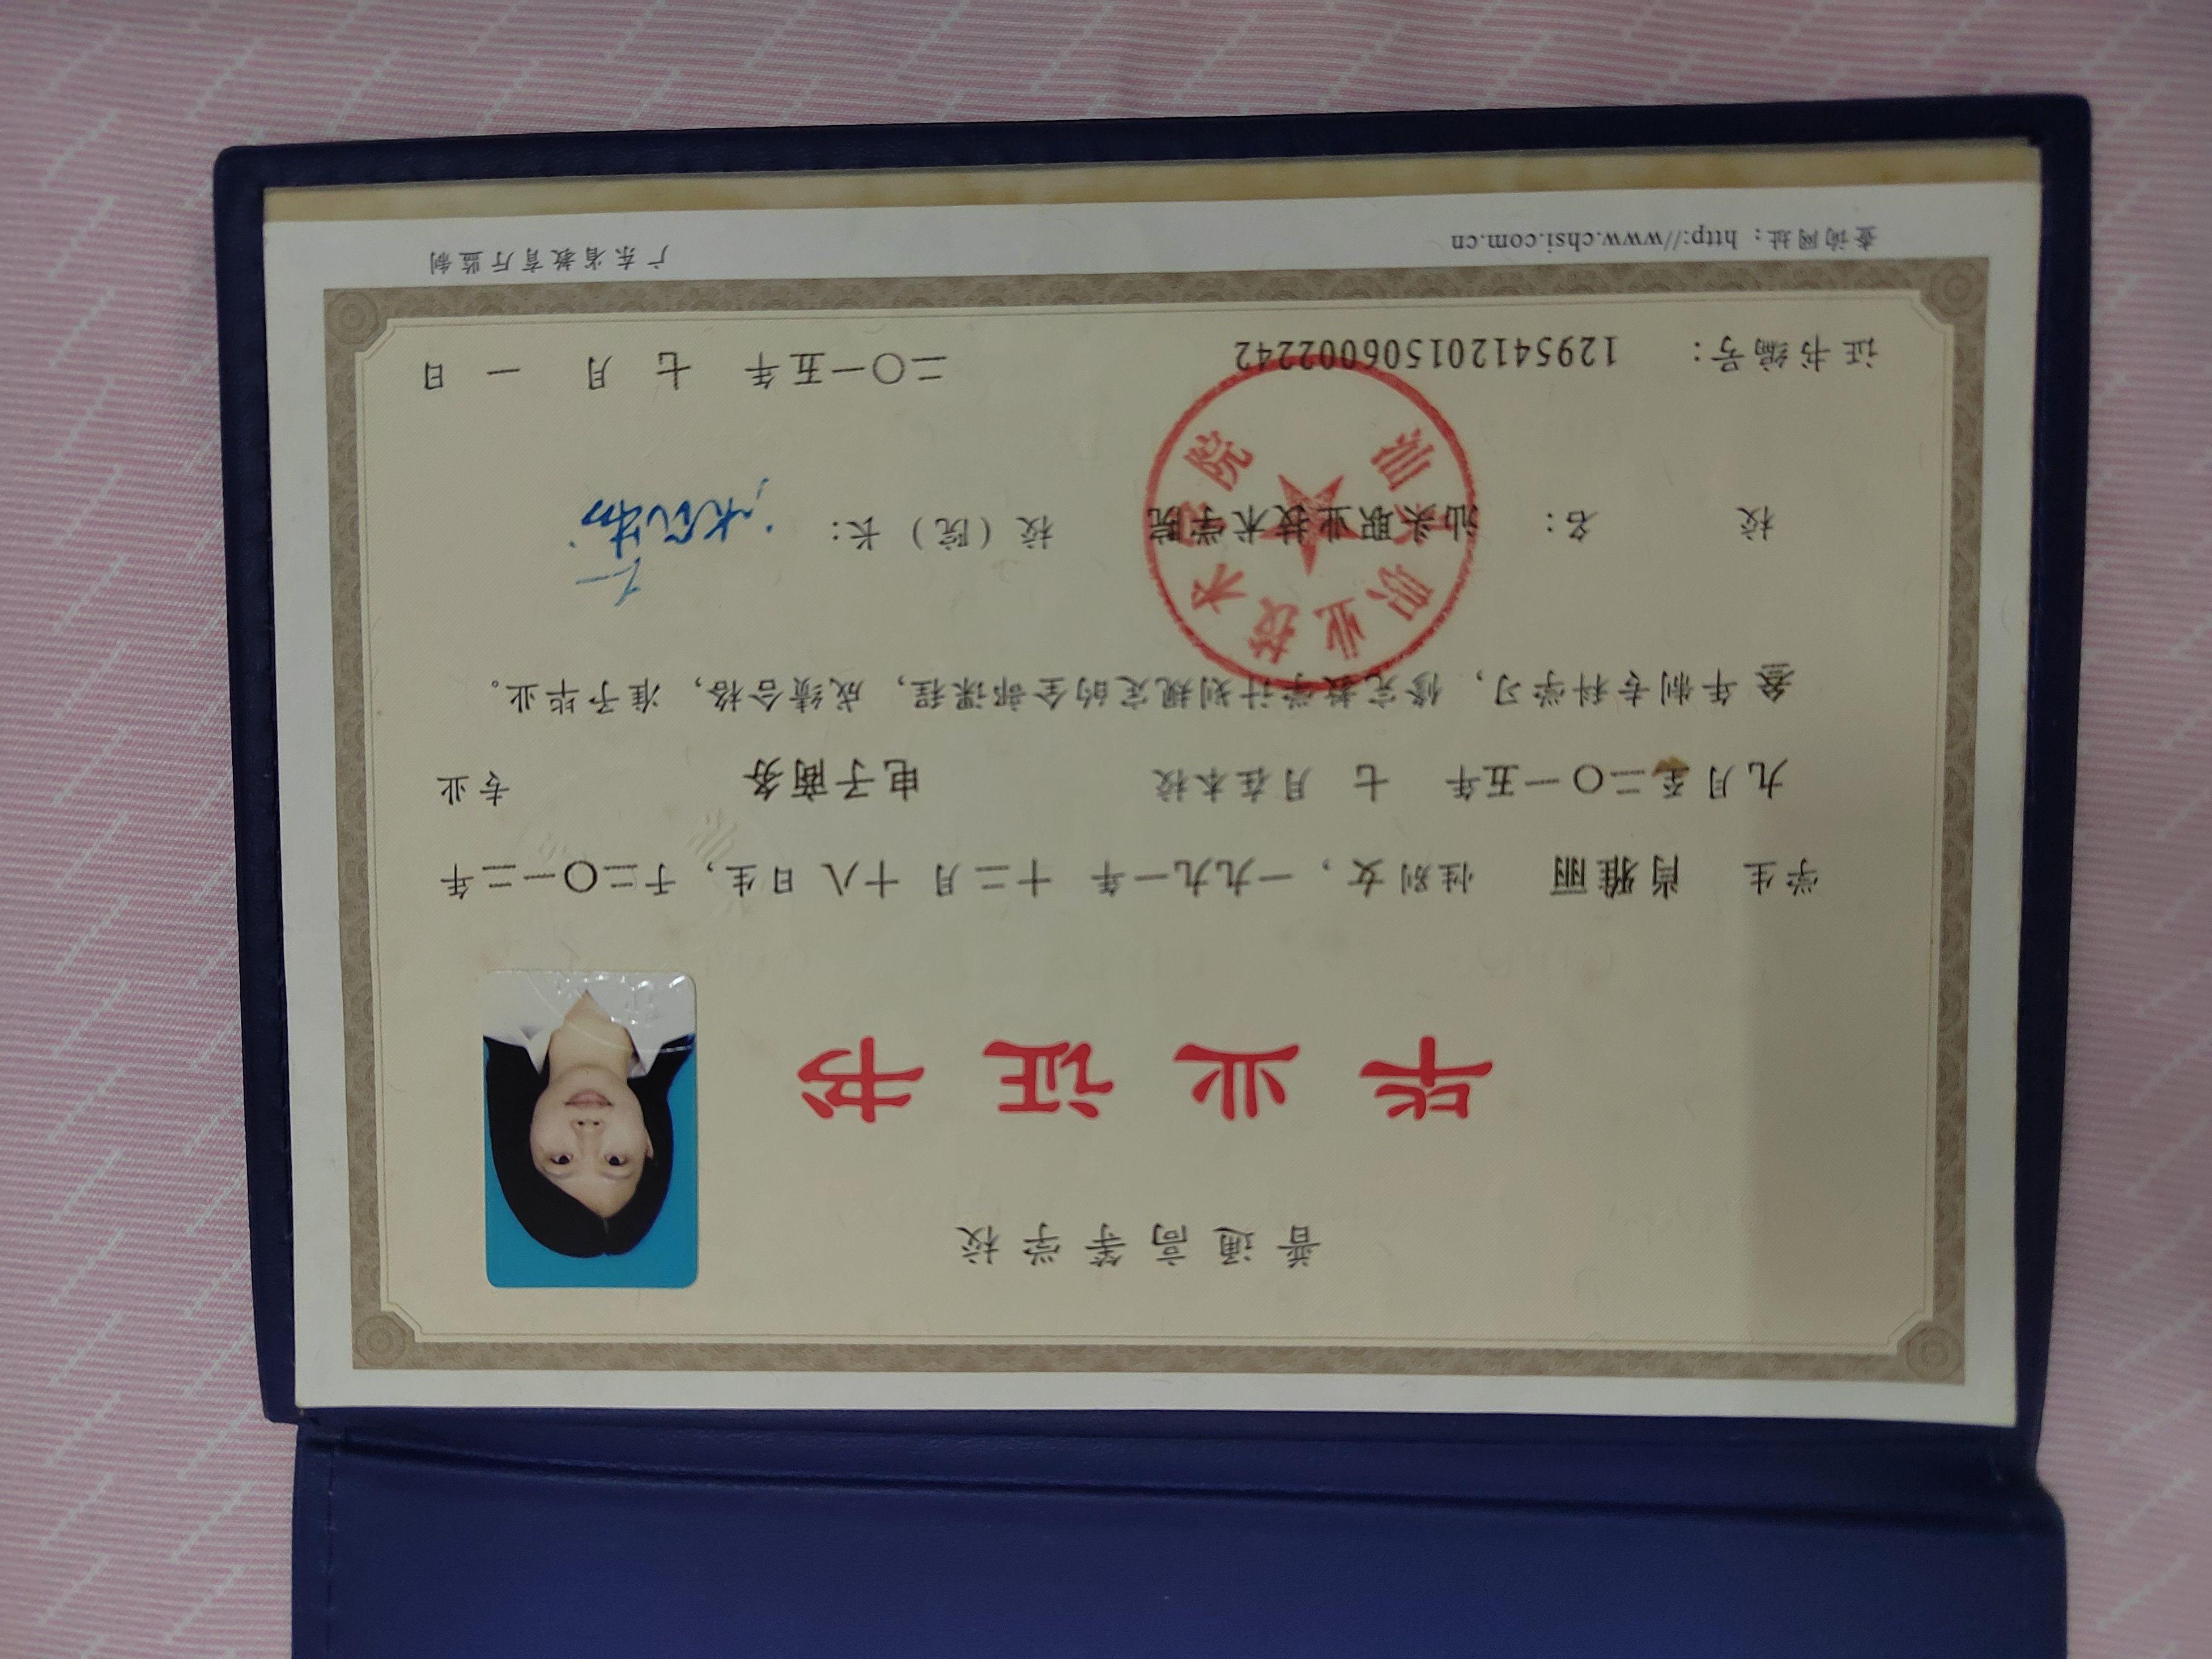 普通高等学校
毕业证书
学生 肖雅丽 性别 女，一九九一年 十二月 十八 日生，于二〇一二年
九月至二〇一五年 七 月在本校 电子商务 专业
叁年制专科学习，修完教学计划规定的全部课程，成绩合格，准予毕业。
校 名： 汕头职业技术学院 校（院）长：
汕头职业技术学院
证书编号： 129541201506002242 二〇一五年 七 月 一 日
查询网址：http://www.chsi.com.cn 广东省教育厅监制